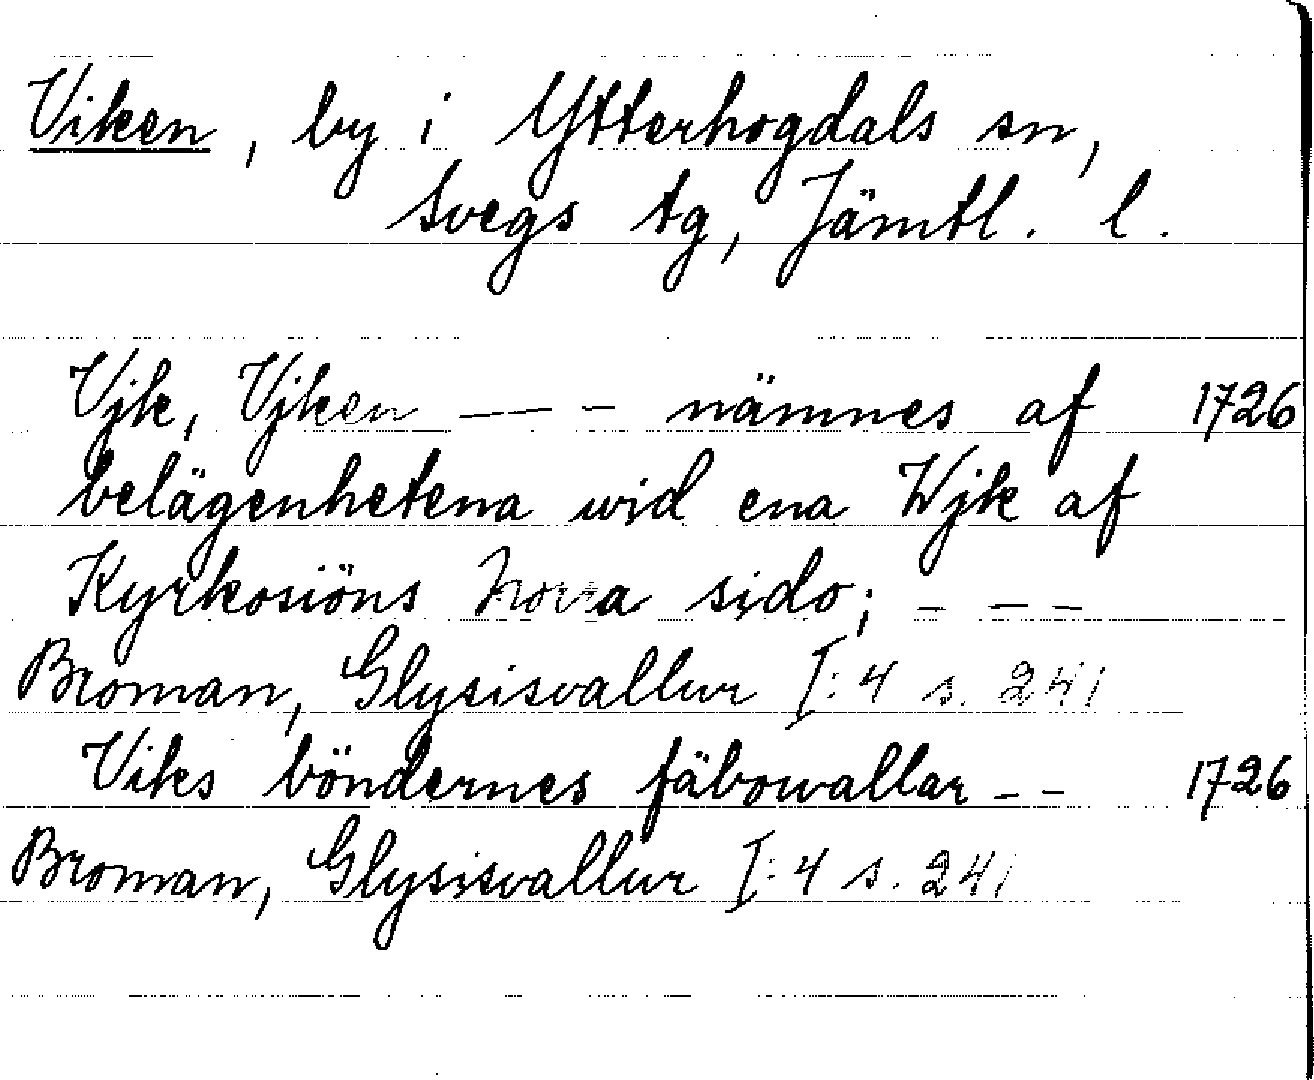 Viken, by i Ytterhogdals sn,
Svegs tg, Jämtl. l.
Vjk, Vjken - - - nämnes af 1726
belägenhetena wid ena Wjk af
Kyrkosiöns norra sido; - - -
Broman, Glysisvallur I:4 s. 241
Viks böndernes fäbowallar - - 1726
Broman, Glysisvallur I:4 s. 241